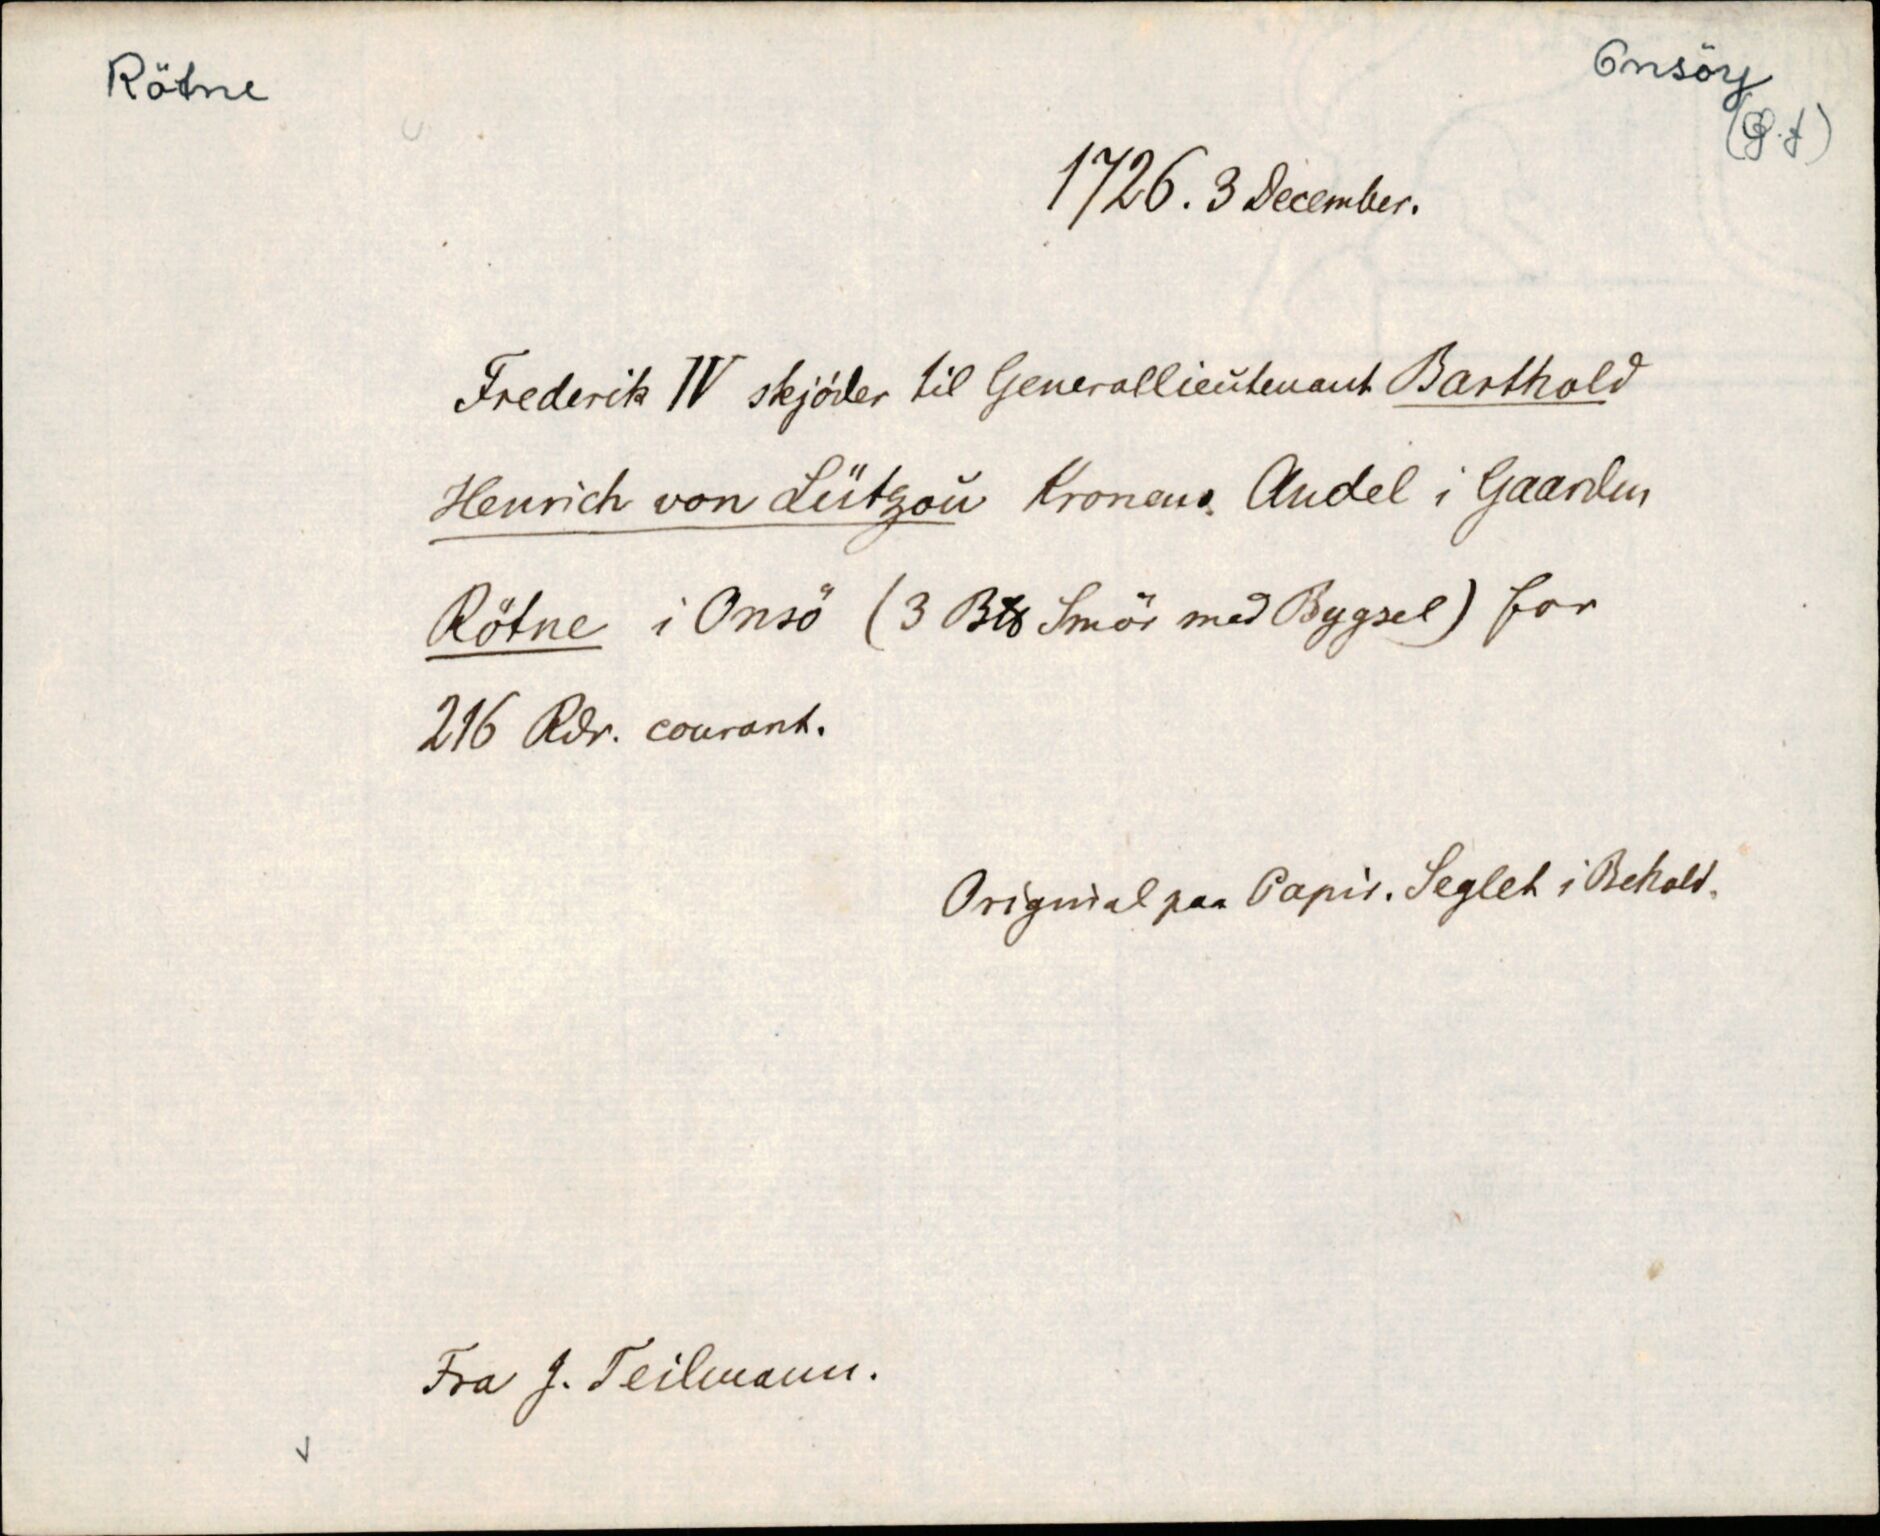 Rötne
Onsöy
1726. 3 December.
Frederik IV skjöder til Generallieutenant Barthold
Henrich von Lützou Kronens Andel i Gaarden
Rötne i Onsö (3 Smör med Bygsel) for
216 Rdr. courant.
Original paa Papir. Seglet i Behold.
Fra J. Teilmann.